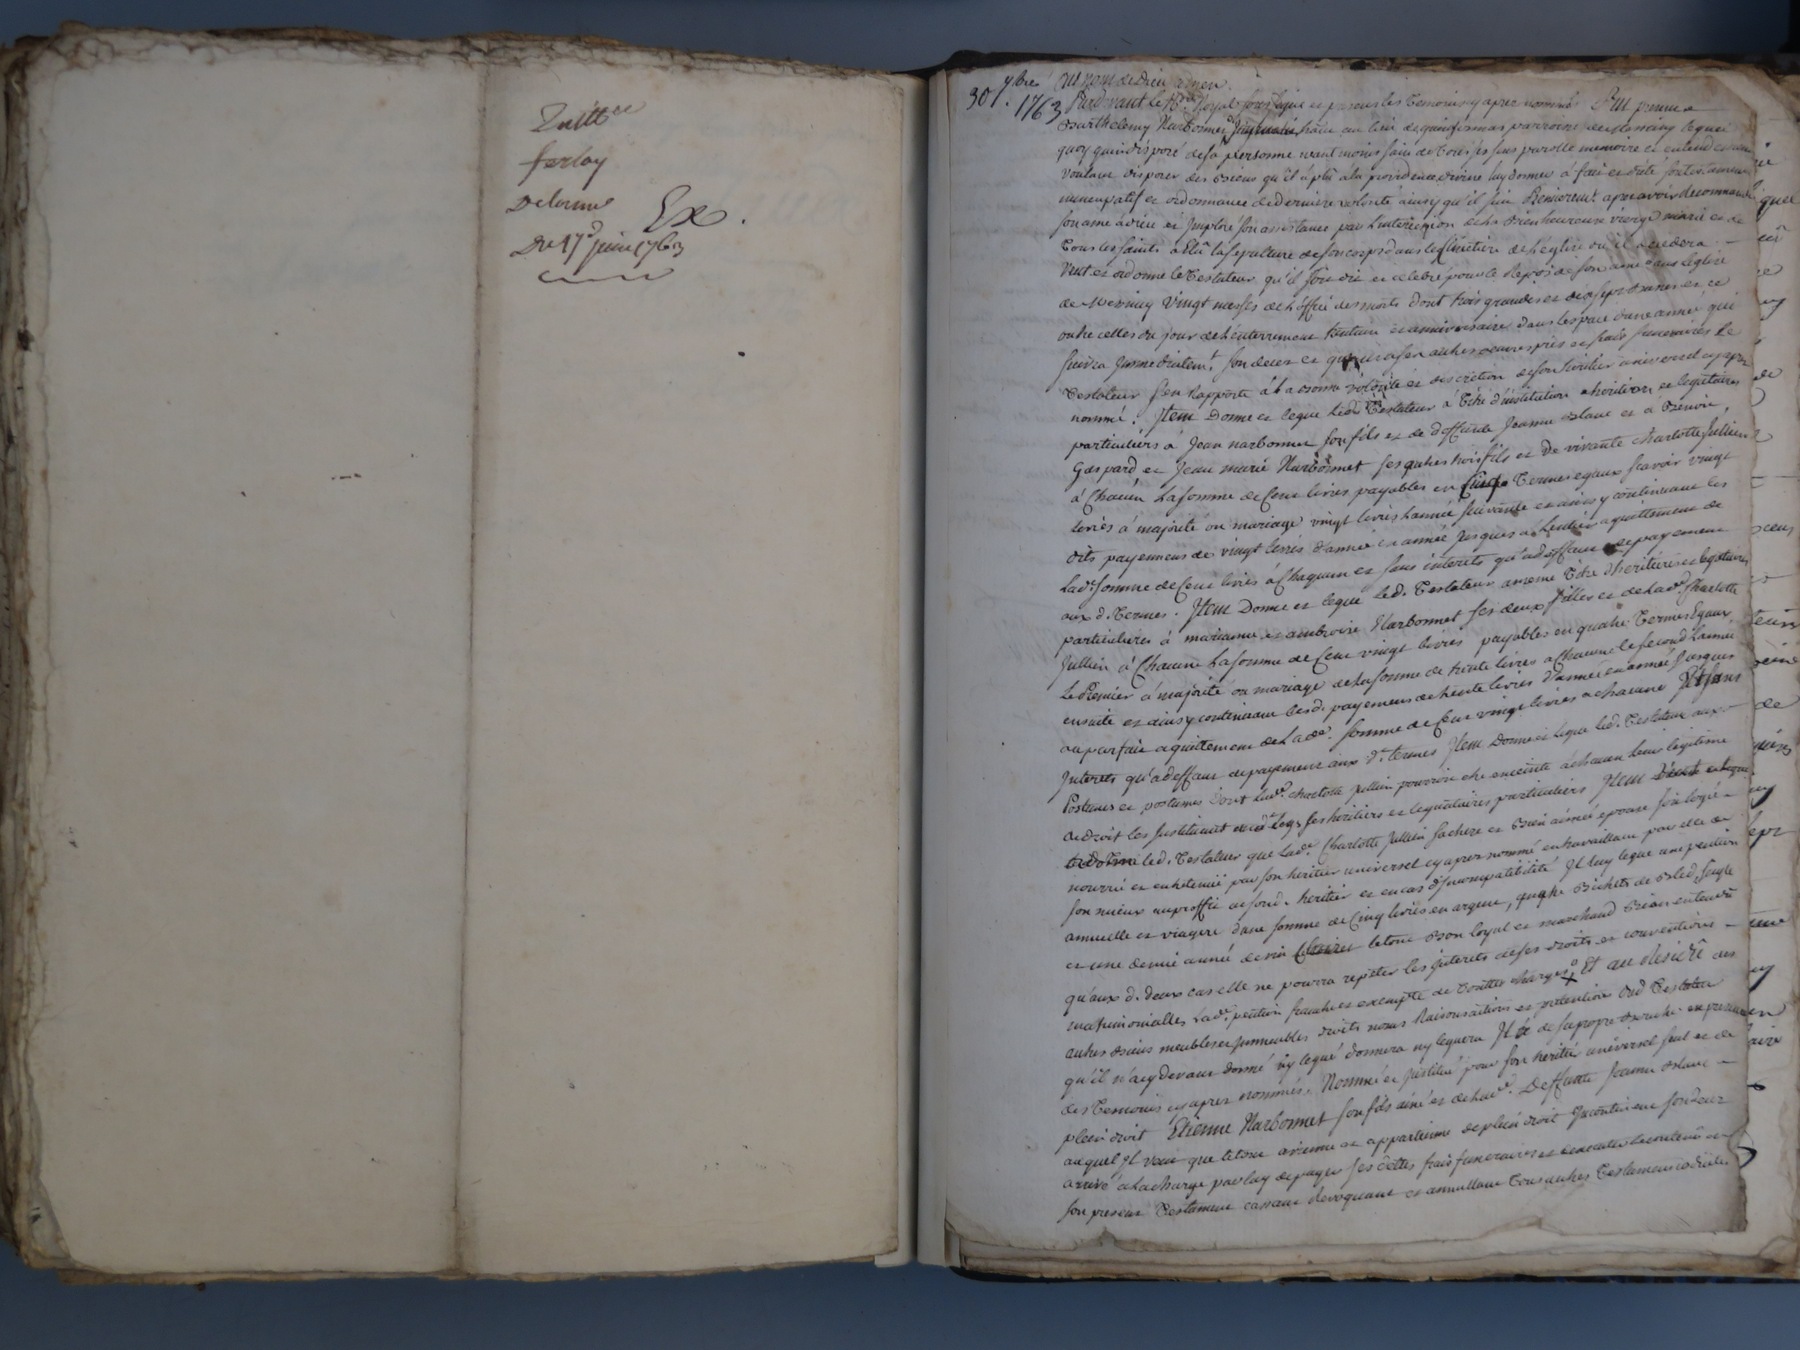 Quitt.ce
ferlay
Delorme
Exp.
Du 17e juin 1763
30 7bre 1763
Au nom de Dieu amen
Pardevant le No.re Royal soussigné et presens les temoins cy apres nommés fut present
Barthelemy Narbonnet
quoy qu'indisposé de sa personne neantmoins sain de tous ses sens parolle memoire et entendement
voulant disposer des Biens qu'il a plû a la providence divine luy donner a fait et dicté son testament
nuncupatif et ordonnance de derniere volonté ainsy qu'il suit Premierem.t apres avoir recommandé
son ame a dieu et Imploré son assistance par l'intercession de la Bienheureuse vierge marie et de
Tous les saints a Elû la sepulture de son corps dans le Cimetiere de l'eglise où il decedera
Veut et ordonne le Testateur qu'il soit dit et celebré pour le Repos de son ame dans l'eglise
de Messimy vingt messes de l'office des morts dont trois grandes et dix sept basses et ce
outre celles du jour de l'enterrement trentain et anniversaire dans l'espace d'une année qui
suivra Immediatem.t son deces et quant a ses autres oeuvres pies et frais funeraires le
Testateur s'en Rapporte a la bonne volonté et discretion de son heritier universel cy apres
nommé. Item Donne et legue led. Testateur a titre d'institution heritiers et legataires
particuliers a Jean narbonnet son fils et de deffunte Jeanne Blanc et a Benoit,
Gaspard et Jean marie Narbonnet ses autres trois fils et De vivante charlotte Jullien
à Chacun la somme de Cent livres payables en Cinq Termes egaux sçavoir vingt
livres a majorité ou mariage vingt livres l'année suivante et ainsy continuant les
dits payemens de vingt livres d'année en année jusques a l'entier aquittement de
lad.e somme de Cent livres à Chaqun et sans interets qu'a deffaut de payement
aux d. Termes. Item Donne et legue led. Testateur a meme titre d'heritieres et legataires
particulieres à marianne et ambroise Narbonnet ses deux filles et de lad.e Charlotte
Jullien à Chacune la somme de Cent vingt livres payables en quatre Termes Egaux
le Premier a majorité ou mariage de la somme de trente livres a Chacune le second l'année
ensuite et ainsy continuant lesd. payemens de trente livres d'année en année jusques
au parfait aquittement de lad.e somme de Cent vingt livres a chacune Et sans
Interets qu'a deffaut de payement aux d.s termes Item Donne et legue led. Testateur aux
Postumes et postumes dont lad.e charlotte Jullien pourroit etre enceinte a chacun leur legitime
de droit les Instituant ses heritiers et legataires particuliers Item Veut et legue
led. Testateur que lad.e Charlotte Jullien sa chere et Bien aimée epouse soit logée
nourrie et entretenüe par son heritier universel cy apres nommé en travaillant par elle de
son mieux au proffit de sond. heritier et en cas d'Incompatibilité Il luy legue une pention
annuelle et viagere d'une somme de Cinq livres en argent, quatre Bichets de Bled seigle
et une demie année de vin le tout Bon loyal et marchand Bien entendû
qu'aux d. deux cas elle ne pourra repeter les Interets de ses droits et conventions
matrimonialles lad.e pention franche et exempte de toutes charges Et au Residû des
autres Biens meubles et Immeubles droits noms Raisons actions et pretentions dud. Testateur
qu'il n'a cy devant donné ny legué donnera ny leguera Il a de sa propre Bouche en presence
des Temoins cy apres nommés, Nommé et Institué pour son heritier universel seul et de
plein droit Etienne Narbonnet son fils ainé et de lad.e Deffunte Jeanne Blanc
auquel Il veut que le tout avienne et appartienne de plein droit Incontinent son deces
arrivé a la charge par luy de payer ses dettes frais funeraires et d'executer le contenû en
son present Testament cassant revoquant et annullant tous autres Testamens codicilles